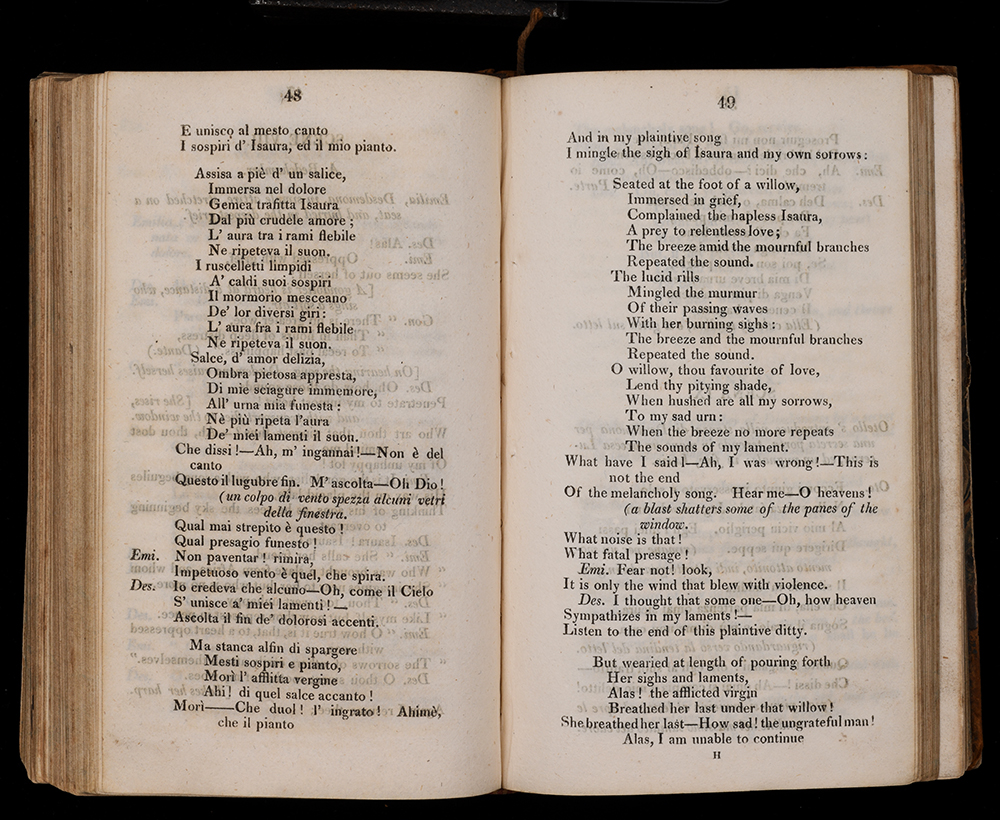 48
E unisco al mesto canto
I sospiri d' Isaura, ed il mio pianto.
Assisa a piè d' un salice,
Immersa nel dolore
Gemea trafitta Isaura
Dal più crudele amore ;
L' aura tra i rami flebile
Ne ripeteva il suon.
I ruscelletti limpidi
A' caldi suoi sospiri
Il mormorio mesceano
De' lor diversi giri :
L' aura fra i rami flebile
Ne ripeteva il suon.
Salce, d' amor delizia,
Ombra pietosa appresta,
Di mie sciagure immemore,
All' urna mia funesta :
Nè più ripeta l'aura
De' miei lamenti il suon.
Che dissi !—Ah, m' ingannai !—Non è del
canto
Questo il lugubre fin. M' ascolta—Oh Dio !
(un colpo di vento spezza alcuni vetri
della finestra.
Qual mai strepito è questo !
Qual presagio funesto !
Emi. Non paventar ! rimira,
Impetuoso vento è quel, che spira.
Des. Io credeva che alcuno—Oh, come il Cielo
S' unisce a' miei lamenti !—
Ascolta il fin de' dolorosi accenti.
Ma stanca alfin di spargere
Mesti sospiri e pianto,
Morì l' afflitta vergine
Ahi ! di quel salce accanto !
Morì——Che duol ! l' ingrato ! Ahimè,
che il pianto
49
And in my plaintive song
I mingle the sigh of Isaura and my own sorrows :
Seated at the foot of a willow,
Immersed in grief,
Complained the hapless Isaura,
A prey to relentless love ;
The breeze amid the mournful branches
Repeated the sound.
The lucid rills
Mingled the murmur
Of their passing waves
With her burning sighs :
The breeze and the mournful branches
Repeated the sound.
O willow, thou favourite of love,
Lend thy pitying shade,
When hushed are all my sorrows,
To my sad urn :
When the breeze no more repeats
The sounds of my lament.
What have I said !—Ah, I was wrong !—This is
not the end
Of the melancholy song. Hear me—O heavens !
(a blast shatters some of the panes of the
window.
What noise is that !
What fatal presage !
Emi. Fear not ! look,
It is only the wind that blew with violence.
Des. I thought that some one—Oh, how heaven
Sympathizes in my laments !—
Listen to the end of this plaintive ditty.
But wearied at length of pouring forth
Her sighs and laments,
Alas ! the afflicted virgin
Breathed her last under that willow !
She breathed her last—How sad ! the ungrateful man !
Alas, I am unable to continue
H